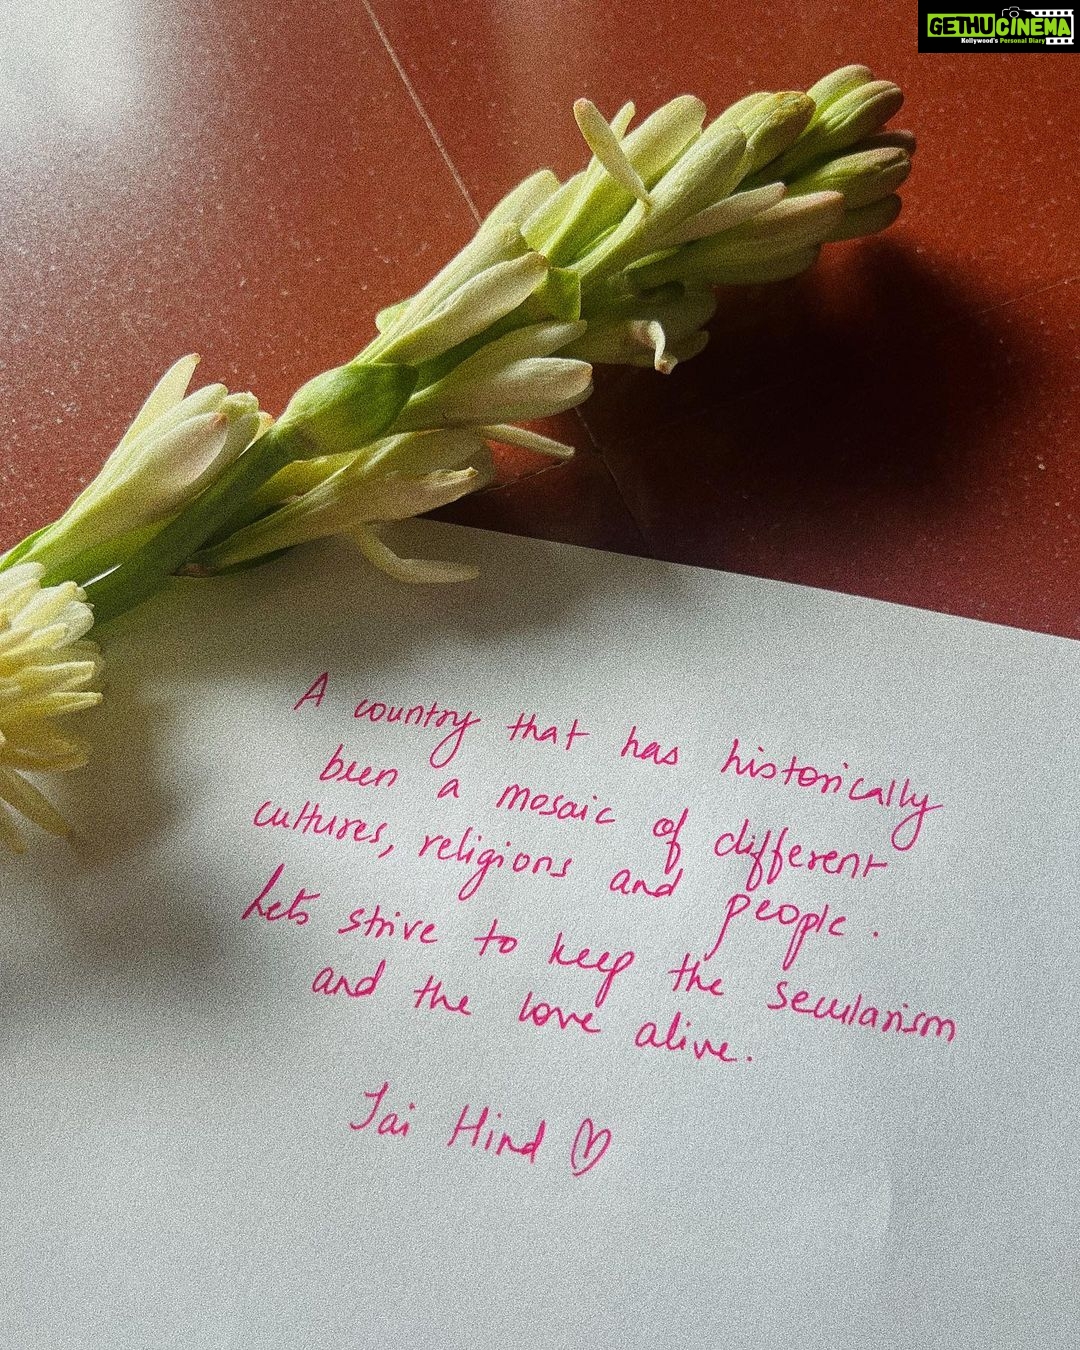 GETHUCINEMA
Kollywood's Personal Diary
A country that has historically
been a mosaic of different
cultures, religions and people.
Lets strive to keep the secularism
and the love alive.
Jai Hind